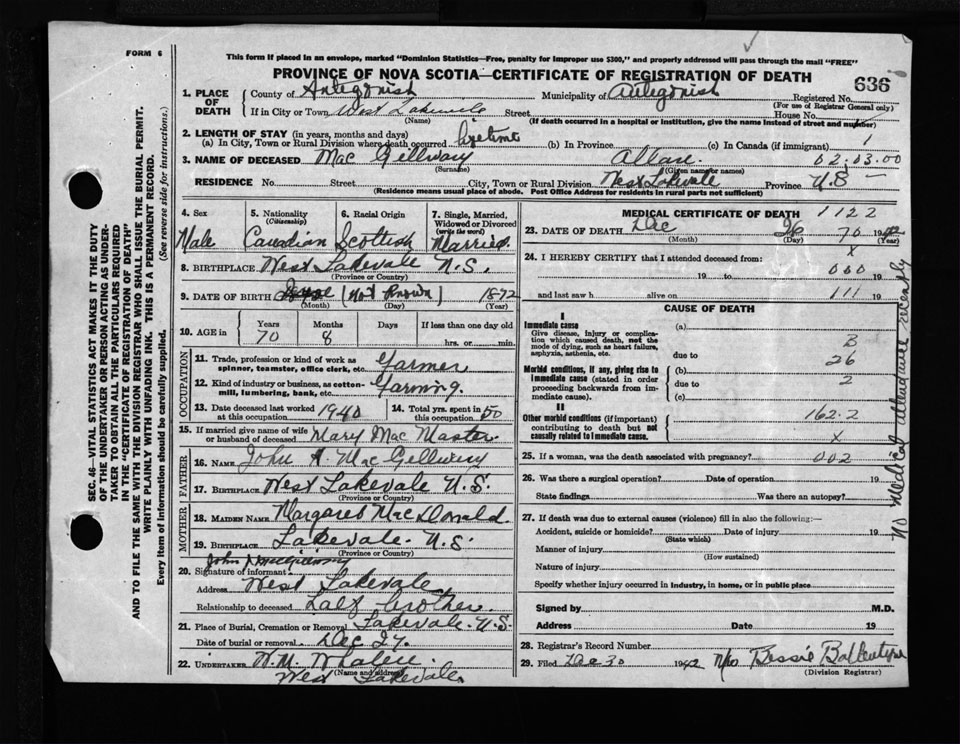 FORM 6
This form if placed in an envelope, marked "Dominion Statistics—Free, penalty for improper use $300," and properly addressed will pass through the mail "FREE"
PROVINCE OF NOVA SCOTIA—CERTIFICATE OF REGISTRATION OF DEATH
636
1. PLACE OF DEATH
County of Antigonish Municipality of Antigonish Registered No.
(For use of Registrar General only)
If in City or Town West Lakevale Street House No.
(Name) (If death occurred in a hospital or institution, give the name instead of street and number)
2. LENGTH OF STAY (in years, months and days)
(a) In City, Town or Rural Division where death occurred lifetime (b) In Province (c) In Canada (if immigrant) 1
3. NAME OF DECEASED Mac Gillivary Allan. 02.03.00
(Surname) (Given name or names)
RESIDENCE No. Street City, Town or Rural Division West Lakevale Province N.S
(Residence means usual place of abode. Post Office Address for residents in rural parts not sufficient)
4. Sex
Male
5. Nationality
(Citizenship)
Canadian
6. Racial Origin
Scottish
7. Single, Married, Widowed or Divorced
(write the word)
Married.
8. BIRTHPLACE West Lakevale N.S.
(Province or Country)
9. DATE OF BIRTH (Not Known) 1872
(Month) (Day) (Year)
10. AGE in
Years Months Days If less than one day old
70 8 hrs. or min.
OCCUPATION
11. Trade, profession or kind of work as spinner, teamster, office clerk, etc. Farmer
12. Kind of industry or business, as cotton-mill, lumbering, bank, etc. Farming.
13. Date deceased last worked at this occupation 1940
14. Total yrs. spent in this occupation 50
15. If married give name of wife or husband of deceased Mary Mac Master.
FATHER
16. NAME John A. Mac Gillivary
17. BIRTHPLACE West Lakevale N.S.
(Province or Country)
MOTHER
18. MAIDEN NAME Margaret MacDonald.
19. BIRTHPLACE Lakevale. N.S.
(Province or Country)
20. Signature of informant John
Address West Lakevale
Relationship to deceased Half brother.
21. Place of Burial, Cremation or Removal Lakevale. N.S.
Date of burial or removal Dec 27.
22. UNDERTAKER W.M. Whalen.
(Name and address)
West Lakevale.
MEDICAL CERTIFICATE OF DEATH 1122
23. DATE OF DEATH Dec 26 70 19
(Month) (Day) (Year)
24. I HEREBY CERTIFY that I attended deceased from: x
19 to 000 19
and last saw h alive on 111 19
CAUSE OF DEATH
I
Immediate cause
Give disease, injury or complication which caused death, not the mode of dying, such as heart failure, asphyxia, asthenia, etc.
(a)
due to B
Morbid conditions, if any, giving rise to immediate cause (stated in order proceeding backwards from immediate cause).
(b) 26
due to 2
(c)
II
Other morbid conditions (if important) contributing to death but not causally related to immediate cause.
162.2
x
25. If a woman, was the death associated with pregnancy? 002
26. Was there a surgical operation? Date of operation 19
State findings Was there an autopsy?
27. If death was due to external causes (violence) fill in also the following:—
Accident, suicide or homicide? Date of injury 19
(State which)
Manner of injury
(How sustained)
Nature of injury
Specify whether injury occurred in industry, in home, or in public place
Signed by M.D.
Address Date 19
28. Registrar's Record Number
29. Filed Dec 30 1942 Bessie Ballentyne
(Division Registrar)
No medical attendance recently
SEC. 46—VITAL STATISTICS ACT MAKES IT THE DUTY
OF THE UNDERTAKER OR PERSON ACTING AS UNDER-
TAKER TO OBTAIN ALL THE PARTICULARS REQUIRED
IN THE "CERTIFICATE OF REGISTRATION OF DEATH"
AND TO FILE THE SAME WITH THE DIVISION REGISTRAR WHO SHALL ISSUE THE BURIAL PERMIT.
WRITE PLAINLY WITH UNFADING INK. THIS IS A PERMANENT RECORD.
Every item of information should be carefully supplied. (See reverse side for instructions.)